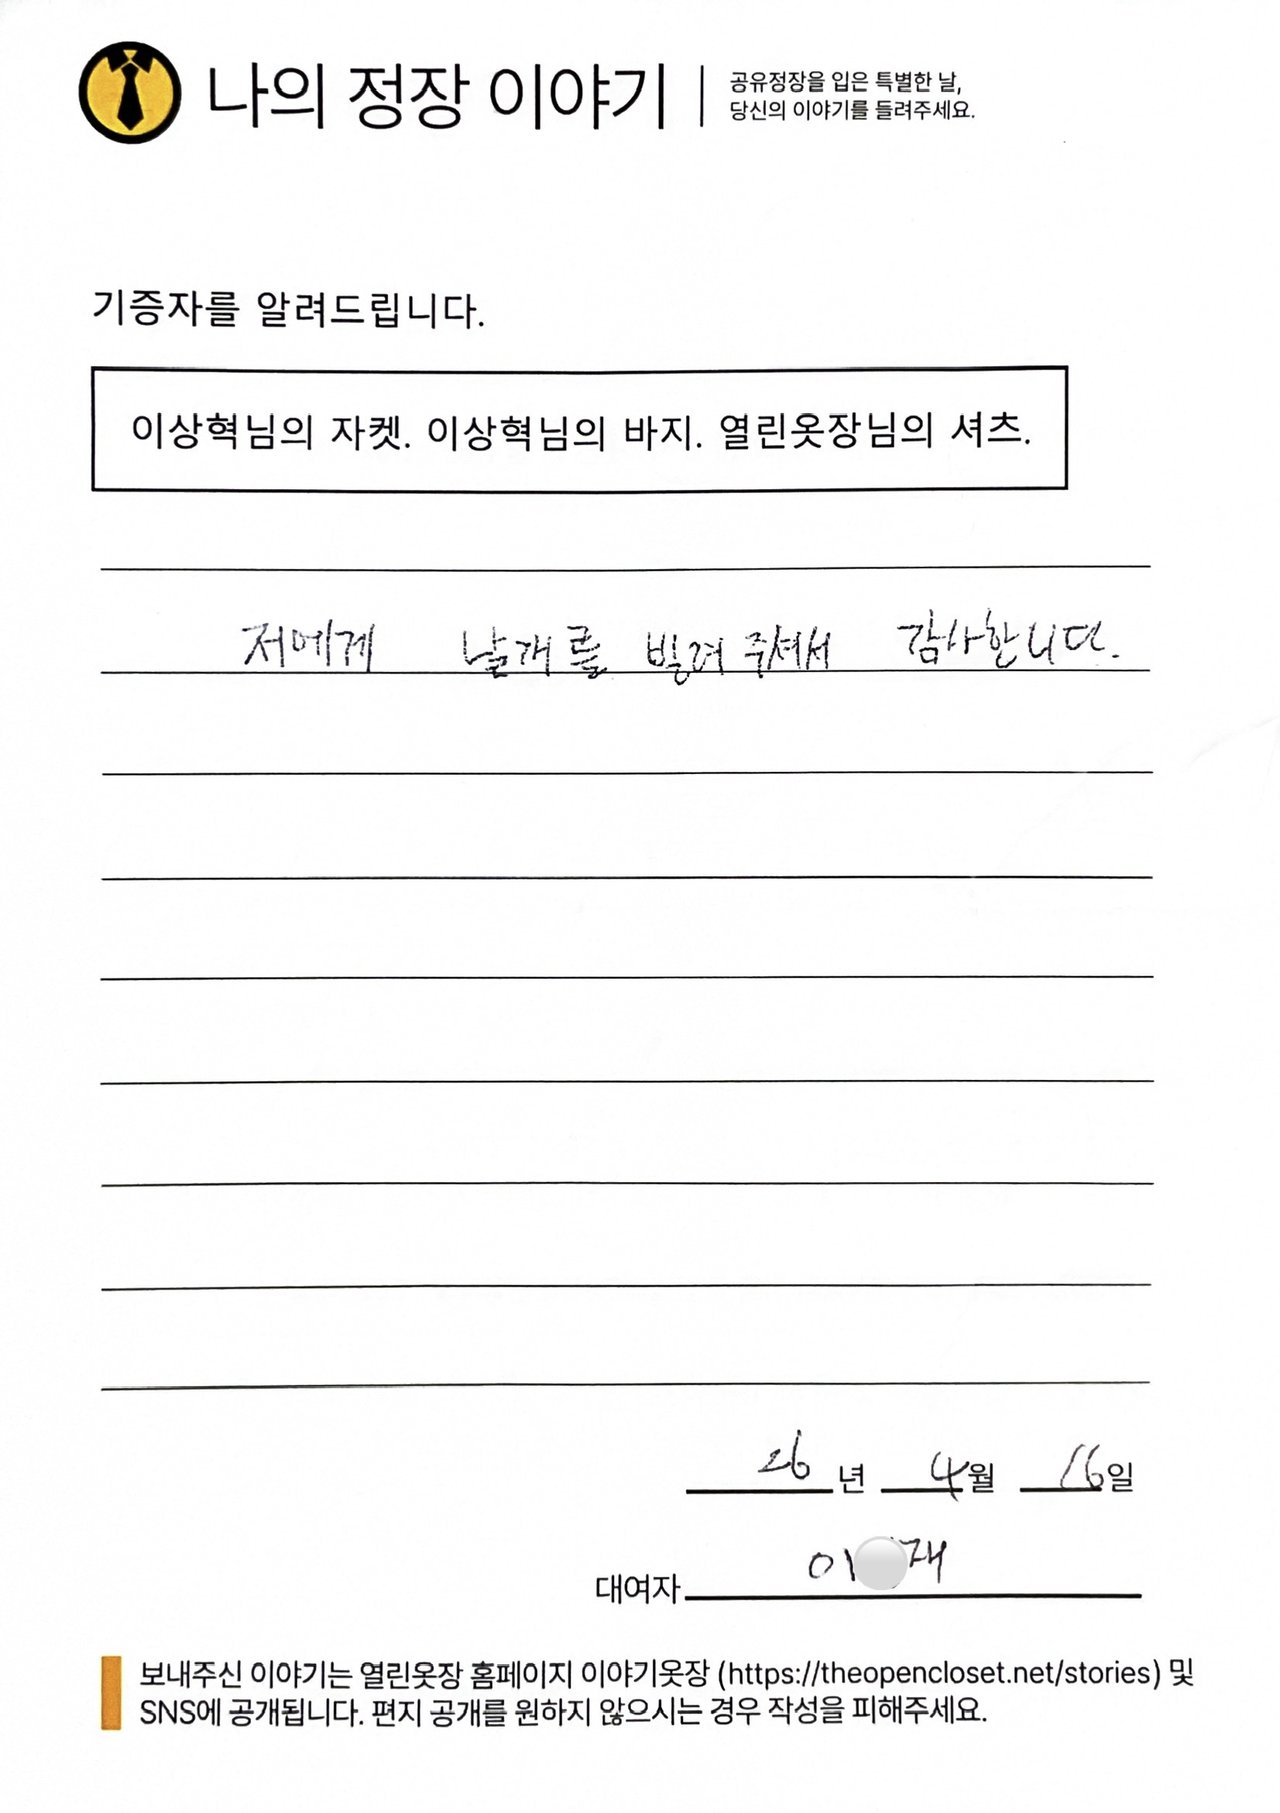 나의 정장 이야기
공유정장을 입은 특별한 날,
당신의 이야기를 들려주세요.
기증자를 알려드립니다.
이상혁님의 자켓. 이상혁님의 바지. 열린옷장님의 셔츠.
저에게 날개를 빌려 주셔서 감사합니다.
26 년 4 월 16 일
대여자 이 재
보내주신 이야기는 열린옷장 홈페이지 이야기옷장 (https://theopencloset.net/stories) 및
SNS에 공개됩니다. 편지 공개를 원하지 않으시는 경우 작성을 피해주세요.